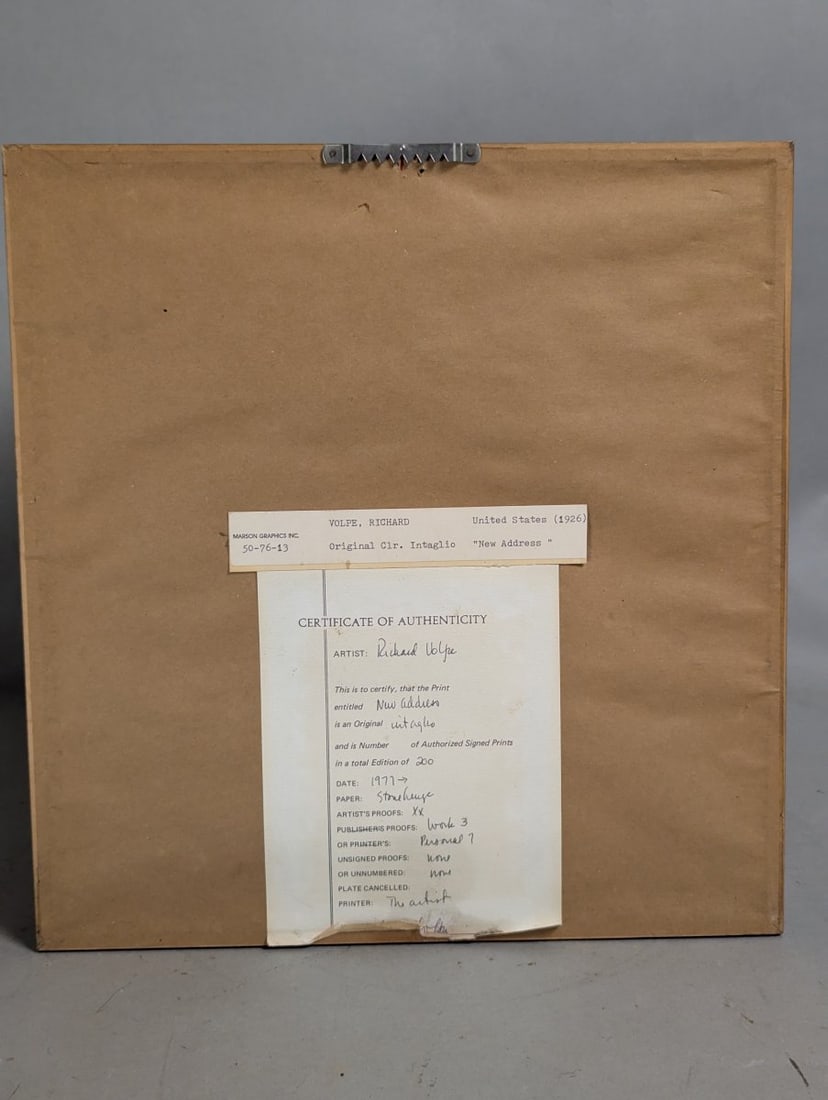 VOLPE, RICHARD United States (1926)
MARSON GRAPHICS INC.
50-76-13 Original Clr. Intaglio "New Address "
CERTIFICATE OF AUTHENTICITY
ARTIST: Richard Volpe
This is to certify, that the Print
entitled New Address
is an Original intaglio
and is Number of Authorized Signed Prints
in a total Edition of 200
DATE: 1977→
PAPER: Stonehenge
ARTIST'S PROOFS: XX
PUBLISHER'S PROOFS: Work 3
OR PRINTER'S: Personal 7
UNSIGNED PROOFS: none
OR UNNUMBERED: none
PLATE CANCELLED:
PRINTER: The artist